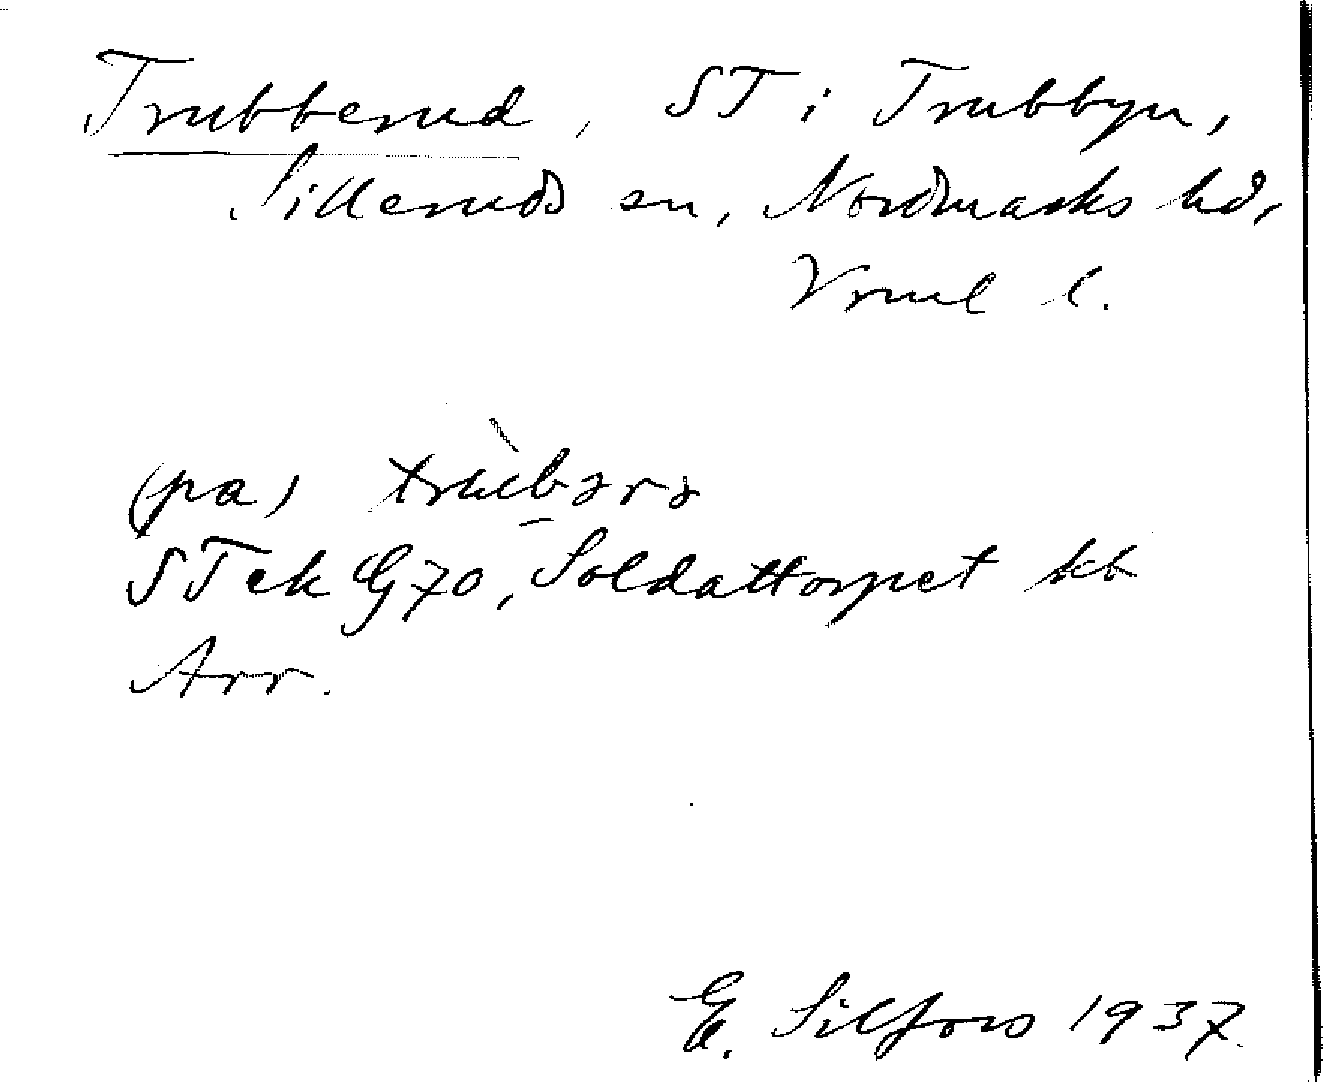 Trubberud, ST i Trubbyn,
Silleruds sn, Nordmarks hd,
Vrml l.
(pa)
STek G70, Soldattorpet kb
Arr.
E. Silfors 1937